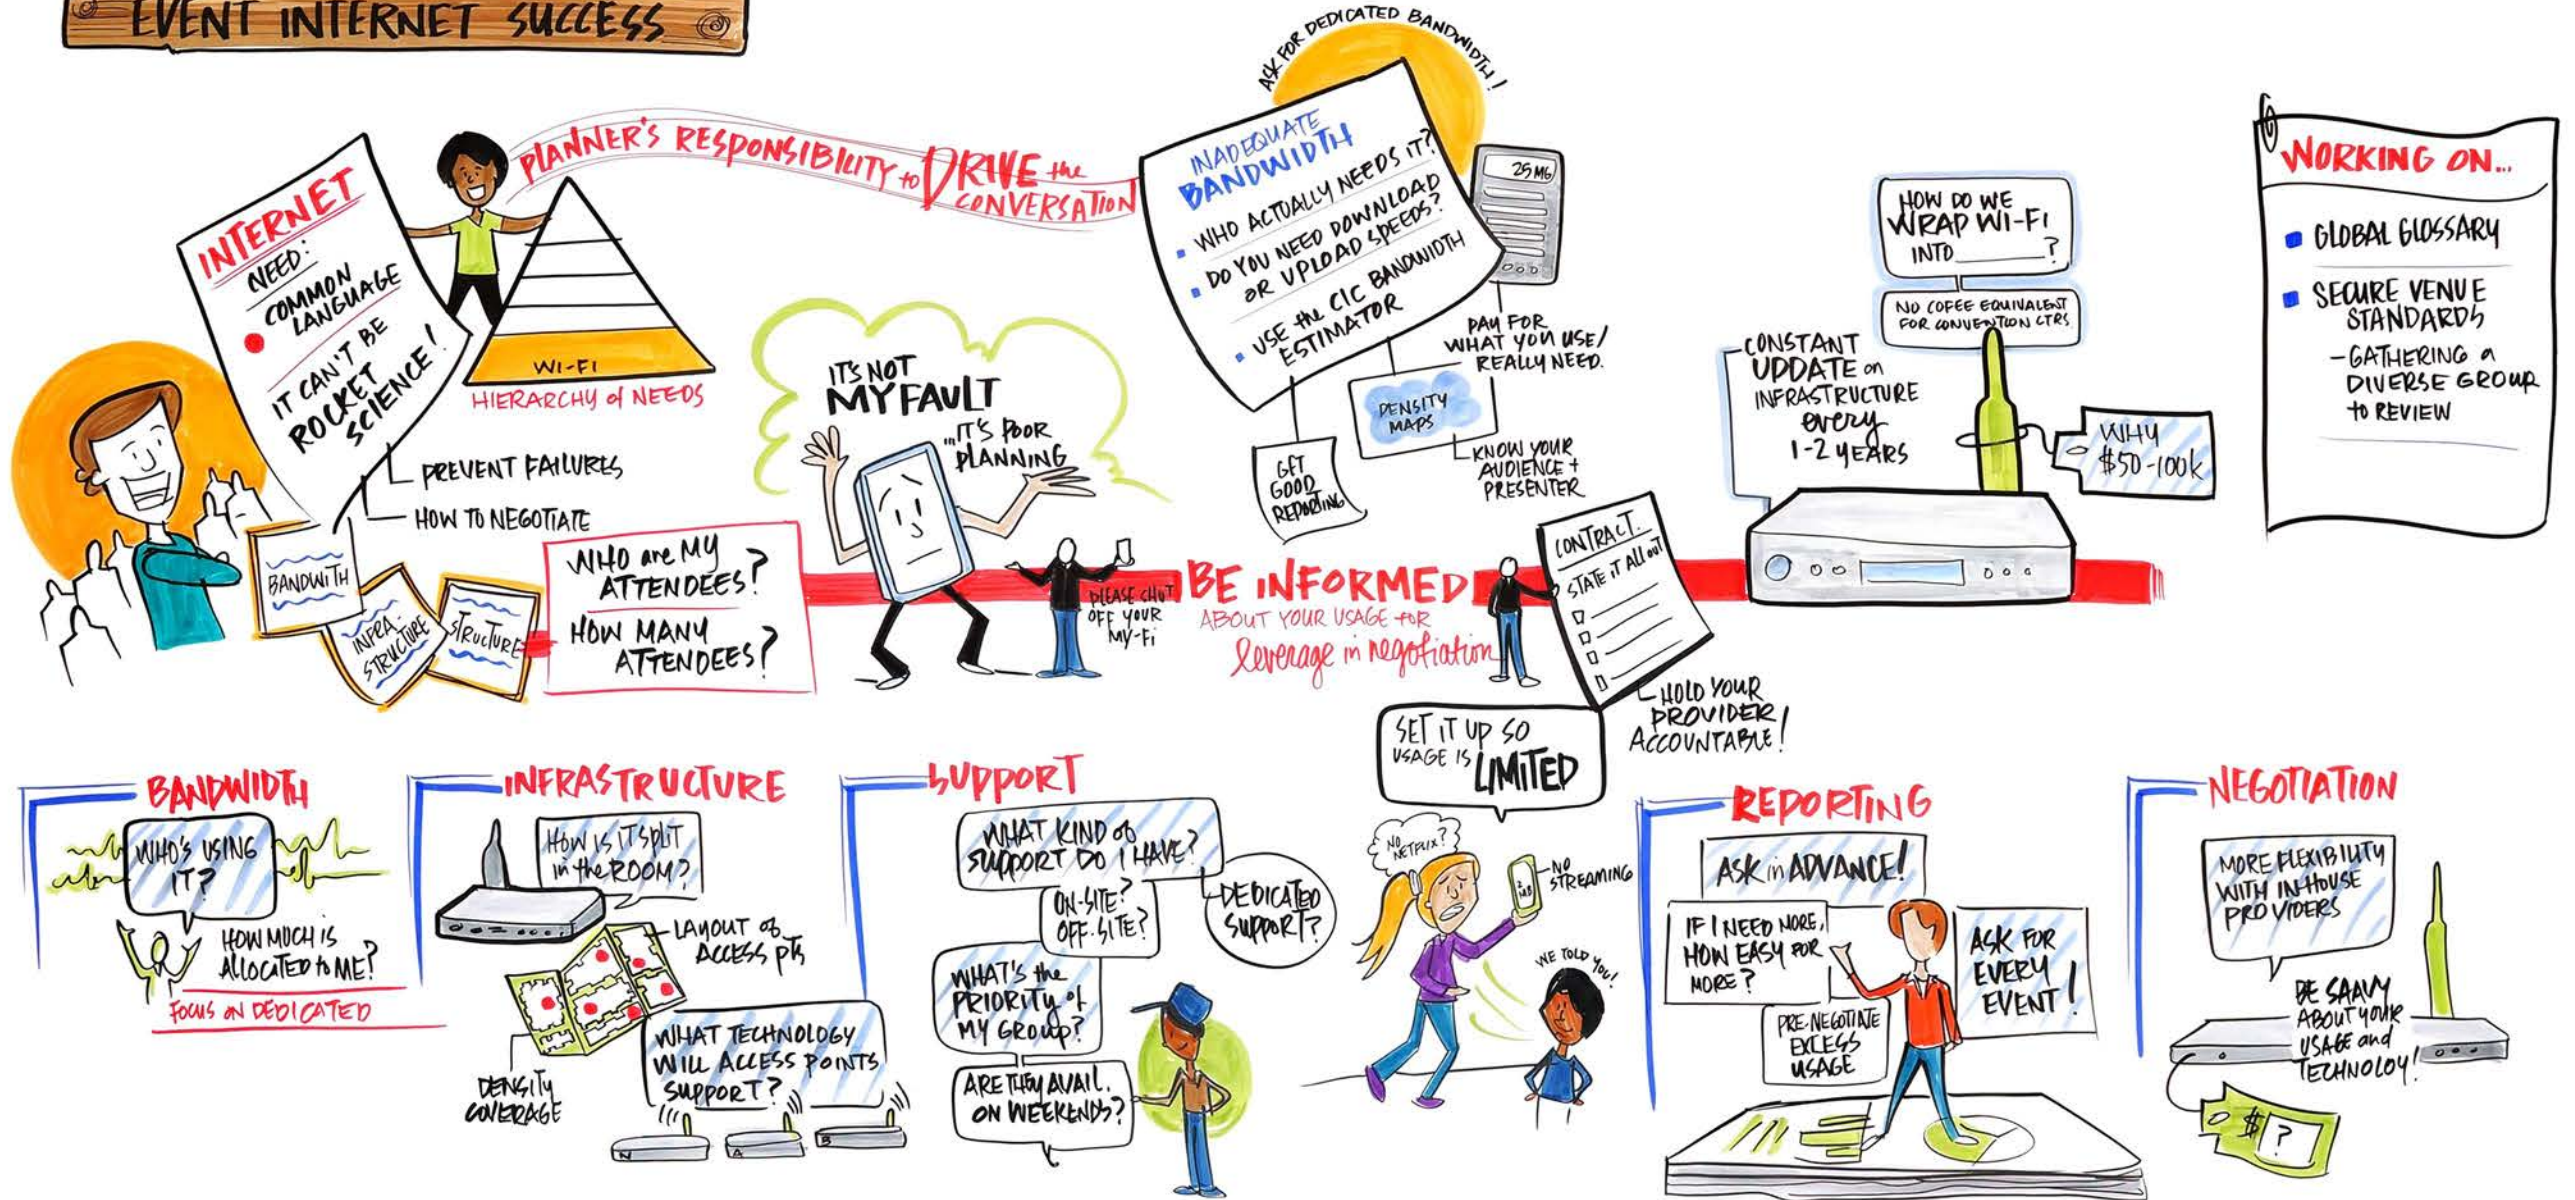 EVENT INTERNET SUCCESS
INTERNET
NEED:
COMMON
LANGUAGE
IT CAN'T BE
ROCKET
SCIENCE!
PREVENT FAILURES
HOW TO NEGOTIATE
BANDWITH
INFRA-
STRUCTURE
STRUCTURE
PLANNER'S RESPONSIBILITY to DRIVE the
CONVERSATION
WI-FI
HIERARCHY of NEEDS
WHO are MY
ATTENDEES?
HOW MANY
ATTENDEES?
IT'S NOT
MY FAULT
...IT'S POOR
PLANNING
PLEASE SHUT
OFF YOUR
MY-Fi
ASK FOR DEDICATED BANDWIDTH!
INADEQUATE
BANDWIDTH
WHO ACTUALLY NEEDS IT?
DO YOU NEED DOWNLOAD
OR UPLOAD SPEEDS?
USE the CIC BANDWIDTH
ESTIMATOR
25 MG
PAY FOR
WHAT YOU USE/
REALLY NEED.
DENSITY
MAPS
KNOW YOUR
AUDIENCE +
PRESENTER
GET
GOOD
REPORTING
BE INFORMED
ABOUT YOUR USAGE FOR
leverage in negotiation
CONTRACT
STATE IT ALL OUT
HOLD YOUR
PROVIDER
ACCOUNTABLE!
CONSTANT
UPDATE on
INFRASTRUCTURE
every
1-2 YEARS
HOW DO WE
WRAP WI-FI
INTO ______?
NO COFEE EQUIVALENT
FOR CONVENTION CTRS
WHY
$50-100K
WORKING ON...
GLOBAL GLOSSARY
SECURE VENUE
STANDARDS
- GATHERING a
DIVERSE GROUP
to REVIEW
BANDWIDTH
WHO'S USING
IT?
HOW MUCH IS
ALLOCATED to ME?
FOCUS ON DEDICATED
INFRASTRUCTURE
HOW IS IT SPLIT
in the ROOM?
LAYOUT OF
ACCESS pts
DENSITY
COVERAGE
WHAT TECHNOLOGY
WILL ACCESS POINTS
SUPPORT?
N
A
B
SUPPORT
WHAT KIND OF
SUPPORT DO I HAVE?
ON-SITE?
OFF-SITE?
DEDICATED
SUPPORT?
WHAT'S the
PRIORITY of
MY GROUP?
ARE THEY AVAIL.
ON WEEKENDS?
SET IT UP SO
USAGE IS LIMITED
NO
NETFLIX?
2
MB
NO
STREAMING
WE TOLD YOU!
REPORTING
ASK in ADVANCE!
IF I NEED MORE,
HOW EASY FOR
MORE?
PRE-NEGOTIATE
EXCESS
USAGE
ASK FOR
EVERY
EVENT!
NEGOTIATION
MORE FLEXIBILITY
WITH IN-HOUSE
PROVIDERS
BE SAAVY
ABOUT YOUR
USAGE and
TECHNOLOY!
$ ?